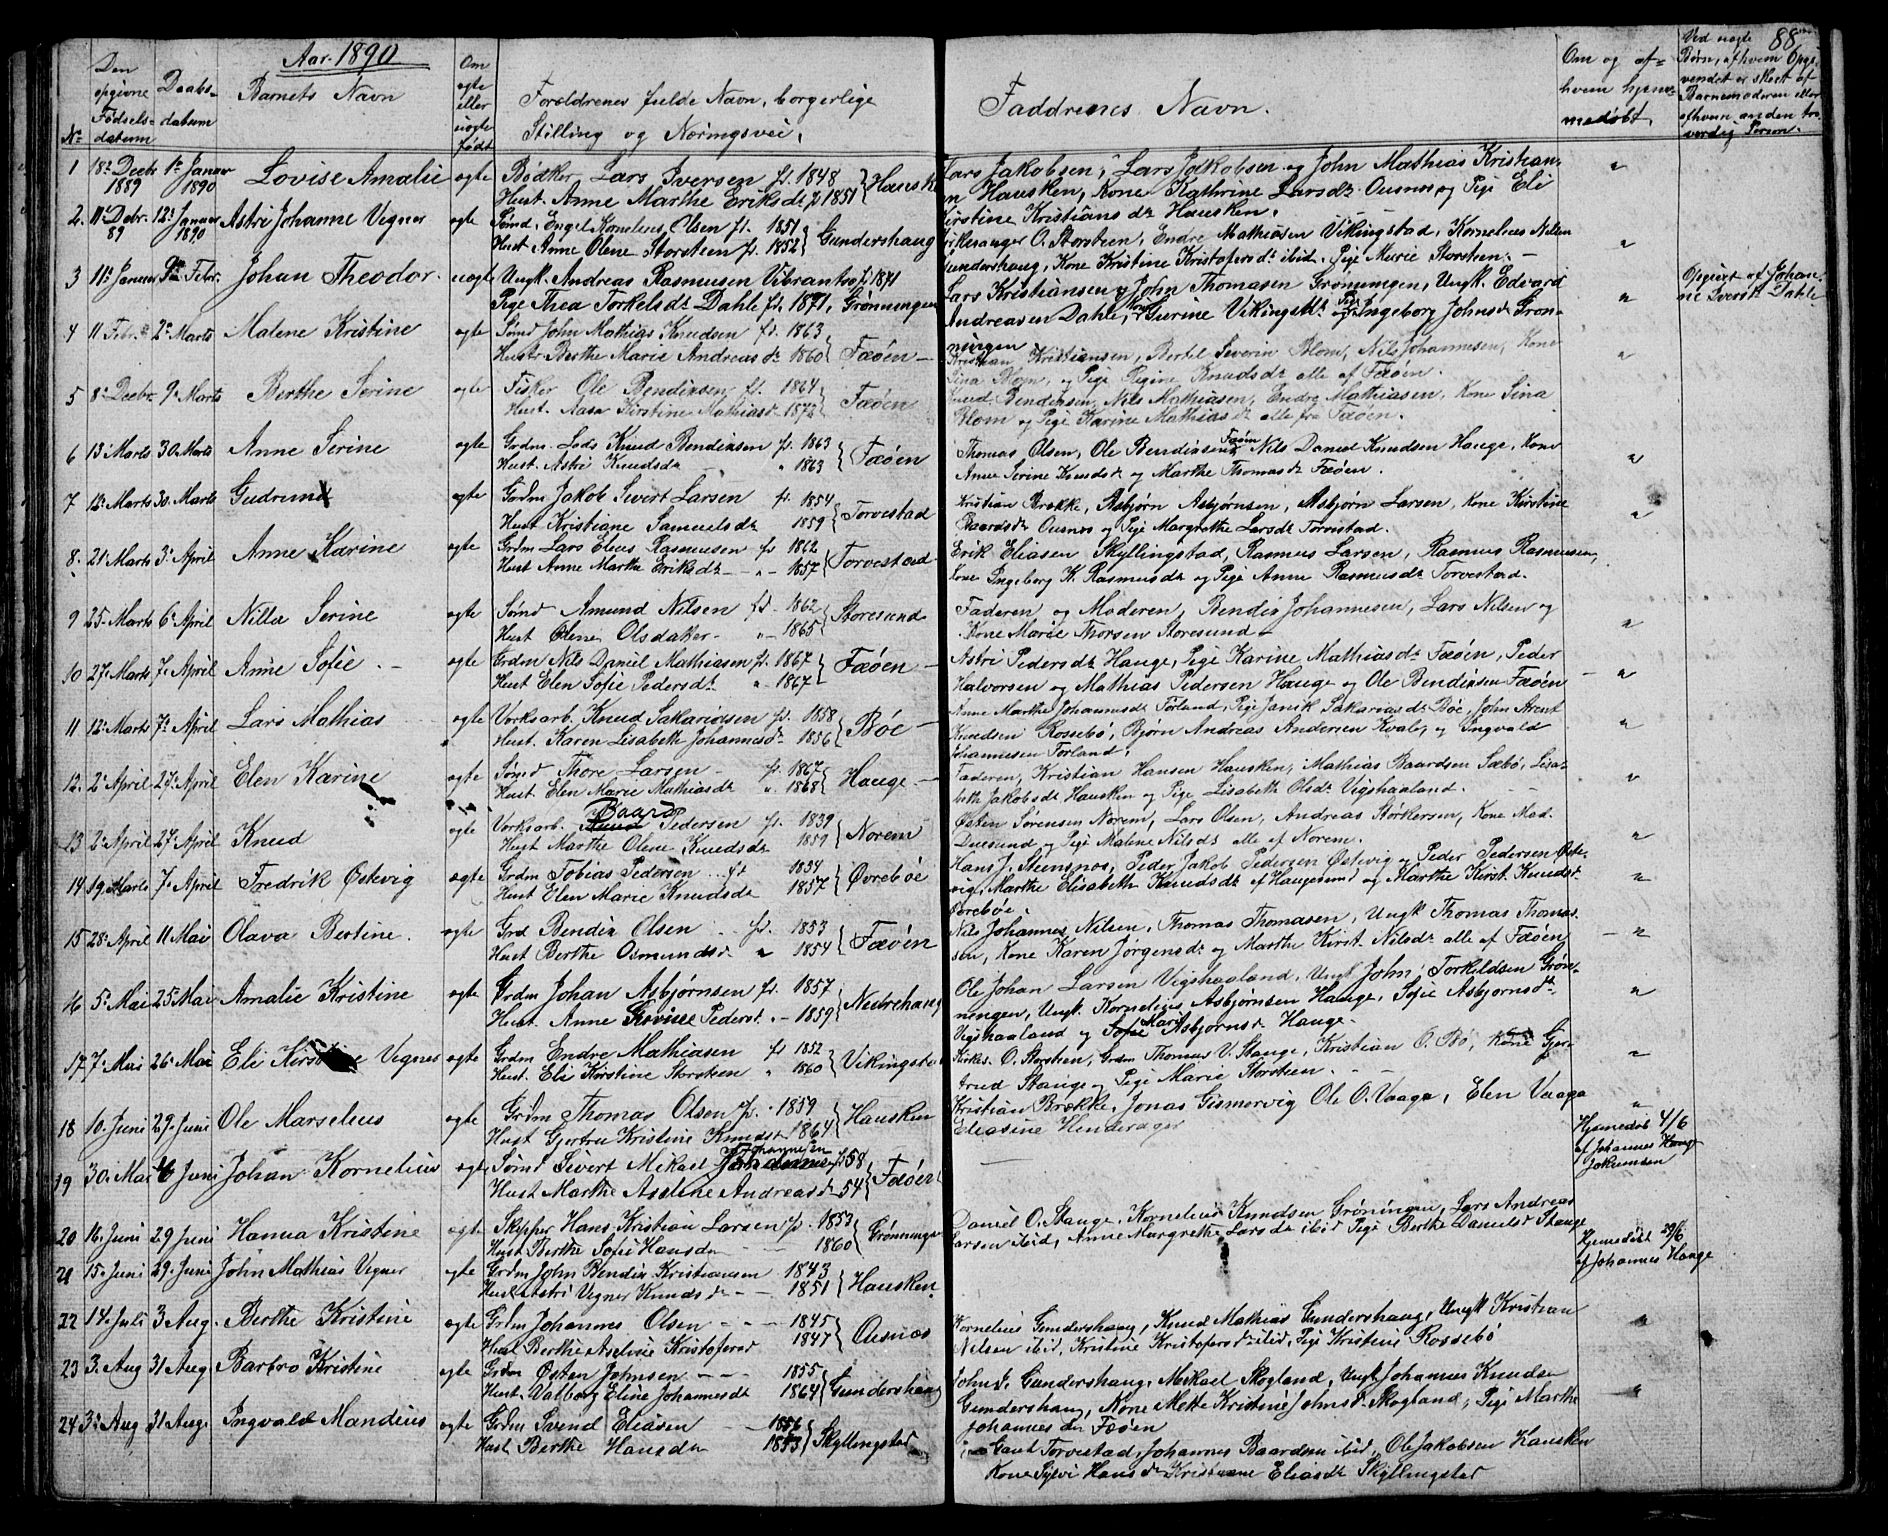 Aar 1890
88
No
Den opgivne Fødsels-datum
Daabs-datum
Barnets Navn
Om ægte eller uægte født
Forældrenes fulde Navn, borgerlige Stilling og Næringsvei.
Faddrenes Navn.
Om og af hvem hjemmedøbt.
Ved uægte Børn, af hvem Opgivendet er skeet af Barnemoderen eller af hvem anden troværdig Person.
1 18 Decbr 1889 1 Januar 1890 Lovise Amalie ægte Bødker Lars Iversen f. 1848
Hust. Anne Marthe Eriksdr f 1851
Lars Jakobsen, Lars Jakobsen og John Mathias Kristian-
Hausken, Kone Kathrine Larsdr Ousnes og Pige Eli
Kirstine Kristiansdr Hausken.
2. 11 Decbr. 89 12 Januar 1890 Astri Johanne Vegner ægte Sømd. Engel Kornelius Olsen f. 1851
Hust Anne Olene Storsteen f. 1852 Gundershaug
O. Storsteen, Endre Mathiasen Vikingstad, Kornelius Nilsen
Gundershaug, Kone Kristine Kristofersdr ibid. Pige Marie Storsteen.
3 11 Januar 9 Febr. Johan Theodor. uægte Ungk. Andreas Rasmussen Vibrantsø f. 1871
Pige Thea Torkelsdr Dahle f. 1871, Grønningen
Lars Kristiansen og John Thomasen Grønningen, Ungk. Edvard
Andreasen Dahle, Kone Gurine Vikingsdr og Pige Ingeborg Johnsdr Grøn-
ningen
Opgivet af Johanne Sversdr Dahle
4 11 Febr. 2 Marts Malene Kristine ægte Sømd John Mathias Knudsen f. 1863
Hustr Berthe Marie Andreasdr 1860 Fæøen
Kristian Kristiansen, Bertel Severin Blom, Nils Johannesen, Kone
Sina Blom, og Pige Regine Knudsdr alle af Fæøen.
5 8 Decbr 9 Marts Berthe Serine ægte Fisker Ole Bendixsen f. 1864
Hust. Aasa Kirstine Mathiasdr 1872 Fæøen
Knud Bendixsen, Nils Mathiasen, Endre Mathiasen, Kone Sina
Blom og Pige Karine Mathiasdr alle fra Fæøen.
6 13 Marts 30 Marts Anne Serine ægte Grdm. Lods Knud Bendixsen f. 1863
Hust. Astri Knudsdr " 1863 Fæøen
Thomas Olsen, Ole Bendixsen Fæøen Nils Daniel Knudsen Hauge, Kone
Anne Serine Knudsdr og Marthe Thomasdr Fæøen.
7 12 Marts 30 Marts Gudrund ægte Grdm Jakob Sivert Larsen f. 1854
Hust Kristiane Samuelsdr 1859 Torvestad
Kristian Brække, Asbjørn Asbjørnsen, Asbjørn Larsen, Kone Kirstine
Baardsdr Ousnes og Pige Margrethe Larsdr Torvestad.
8. 21 Marts 3 April Anne Karine ægte Grdm Lars Elius Rasmussen f. 1862
Hust Anne Marthe Eriksdr " 1857 Torvestad
Erik Eliasen Skyllingstad, Rasmus Larsen, Rasmus Rasmussen,
Kone Ingeborg K. Rasmusdr og Pige Anne Rasmusdr Torvestad.
9 25 Marts 6 April Nilla Serine ægte Sømd Amund Nilsen f. 1862
Hust Olene Olsdaker " 1865 Storesund
Faderen og Moderen, Bendix Johannesen, Lars Nilsen og
Kone Marie Thorsen Storesund
10 27 Marts 7 April Anne Sofie ægte Grdm Nils Daniel Mathiasen f. 1867
Hust Elen Sofie Pedersdr " 1867 Fæøen
Astri Pedersdr Hauge, Pige Karine Mathiasdr Fæøen, Peder
Halvorsen og Mathias Pedersen Hauge og Ole Bendixsen Fæøen
11 12 Marts 7 April Lars Mathias ægte Vorksarb. Knud Sakariasen f. 1858
Hust. Karen Lisabeth Johannesdr 1856 Bøe
Anne Marthe Johannesdr Førland, Pige Janik Sakariasdr Bøe, John Arent
Knudsen Rossebø, Bjørn Andreas Andersen Kvale, og Ingvald
Johannesen Førland.
12. 2 April 27 April Elen Karine ægte Sømd Thore Larsen f. 1867
Hust. Elen Marie Mathiasdr " 1868 Hauge
Faderen, Kristian Hansen Hausken, Mathias Baardsen Sæbø, Lisa-
beth Jakobsdr Hausken og Pige Lisabeth Olsdr Vigshaaland.
13 2 April 27 April Knud ægte Vorksarb. Baard Pedersen f. 1839
Hust Marthe Olene Knudsdr 1859 Norem
Østen Sørensen Norem, Lars Olsen, Andreas Størkersen, Kone Mad.
Duesund og Pige Malene Nilsdr alle af Norem.
14 19 Marts 7 April Fredrik Østevig ægte Grdm Tobias Pedersen f 1834
Hust Elen Marie Knudsdr 1857 Øvrebøe
Hans J. Stensnes, Peder Jakob Pedersen Østevig og Peder Pedersen Øste-
vig, Marthe Elisabeth Knudsdr af Haugesund og Marthe Kirst. Knudsdr
Øvrebøe.
15 28 April 11 Mai Olava Bertine. ægte Grd Bendix Olsen f. 1853
Hust Berthe Osmundsdr " 1854 Fæøen
Nils Johannes Nilsen, Thomas Thomasen, Ungk Thomas Thomas-
sen, Kone Karen Jørgensdr og Marthe Kirst. Nilsdr alle af Fæøen
16 5 Mai 25 Mai Amalie Kristine ægte Grdm Johan Asbjørnsen f. 1857
Hust. Anne Pedersdr 1859 Nedrehaug
Ole Johan Larsen Vigshaaland, Ungk John Torkildsen Grøn-
nengen, Ungk. Kornelius Asbjørnsen Hauge, Sofie Asbjørnsdr
Vigshaaland og Sofie Mari Asbjørnsdr Hauge.
17 7 Mai 26 Mai Eli Kirstine Vegner ægte Grdm Endre Mathiasen f 1852
Hust. Eli Kirstine Storsteen " 1860 Vikingstad
Kirkes. O. Storsteen, Grdm Thomas V. Stange, Kristian O. Bø, Kone Gjer-
trud Stange og Pige Marie Storsteen.
18 10 Juni 29 Juni Ole Marselius ægte Grdm Thomas Olsen f. 1859
Hust Gjertru Kristine Knudsdr 1864 Hausken
Kristian Brække, Jonas Gismervig Ole O. Vaaga, Elen Vaaga
Eliasine Henderager
19 30 Mai 6 Juni Johan Kornelius ægte Sømd Sivert Mikael Johannesen f 58
Hust Marthe Aseline Andreasdr 54 Fæøen
Hjemedøb 4/6 af Johannes Hauge Jokumsen
20 16 Juni 29 Juni Hanna Kristine ægte Skipper Hans Kristian Larsen f. 1853
Hust Berthe Sofie Hansdr 1860 Grønningen
Daniel O. Stange, Kornelius Knudsen Grøningen, Lars Andreas
Larsen ibid, Anne Margrethe Larsdr ibid Pige Berthe Danielsdr Stange
21 15 Juni 29 Juni John Mathias Vegner ægte Grdm John Bendix Kristiansen 1843
Hust Astri Vegner Knudsdr 1851 Hausken
Hjemedøbt 29/6 af Johannes Hauge
22 14 Juli 3 Aug. Berthe Kristine ægte Grdm Johannes Olsen 1845
Hust Berthe Aseline Kristofersdr 1847 Ousnes
Kornelius Gundershaug, Knud Mathias Gundershaug, Ungk Kristian
Nilsen ibid, Kristine Kristofersdr ibid, Pige Kristine Rossebø
23 3 Aug 31 Aug. Barbro Kristine ægte Grdm Østen Johnsen 1855
Hust. Valborg Eline Johannesdr 1864 Gundershaug
John J. Gundershaug, Mikael Skogland, Ungk Johannes Knudsen
Gundershaug, Kone Mette Kristine Johnsdr Skogland, Pige Marthe
Johannesdr Fæøen
24 3 Aug 31 Aug. Ingvald Mandius ægte Grdm Svend Eliasen 1856
Hust Berthe Hansdr 1853 Skyllingstad
Gaut Torvestad, Johannes Baardsen ibid, Ole Jakobsen Hausken
Kone Sylvi Hansdr Kristiane Eliasdr Skyllingstad